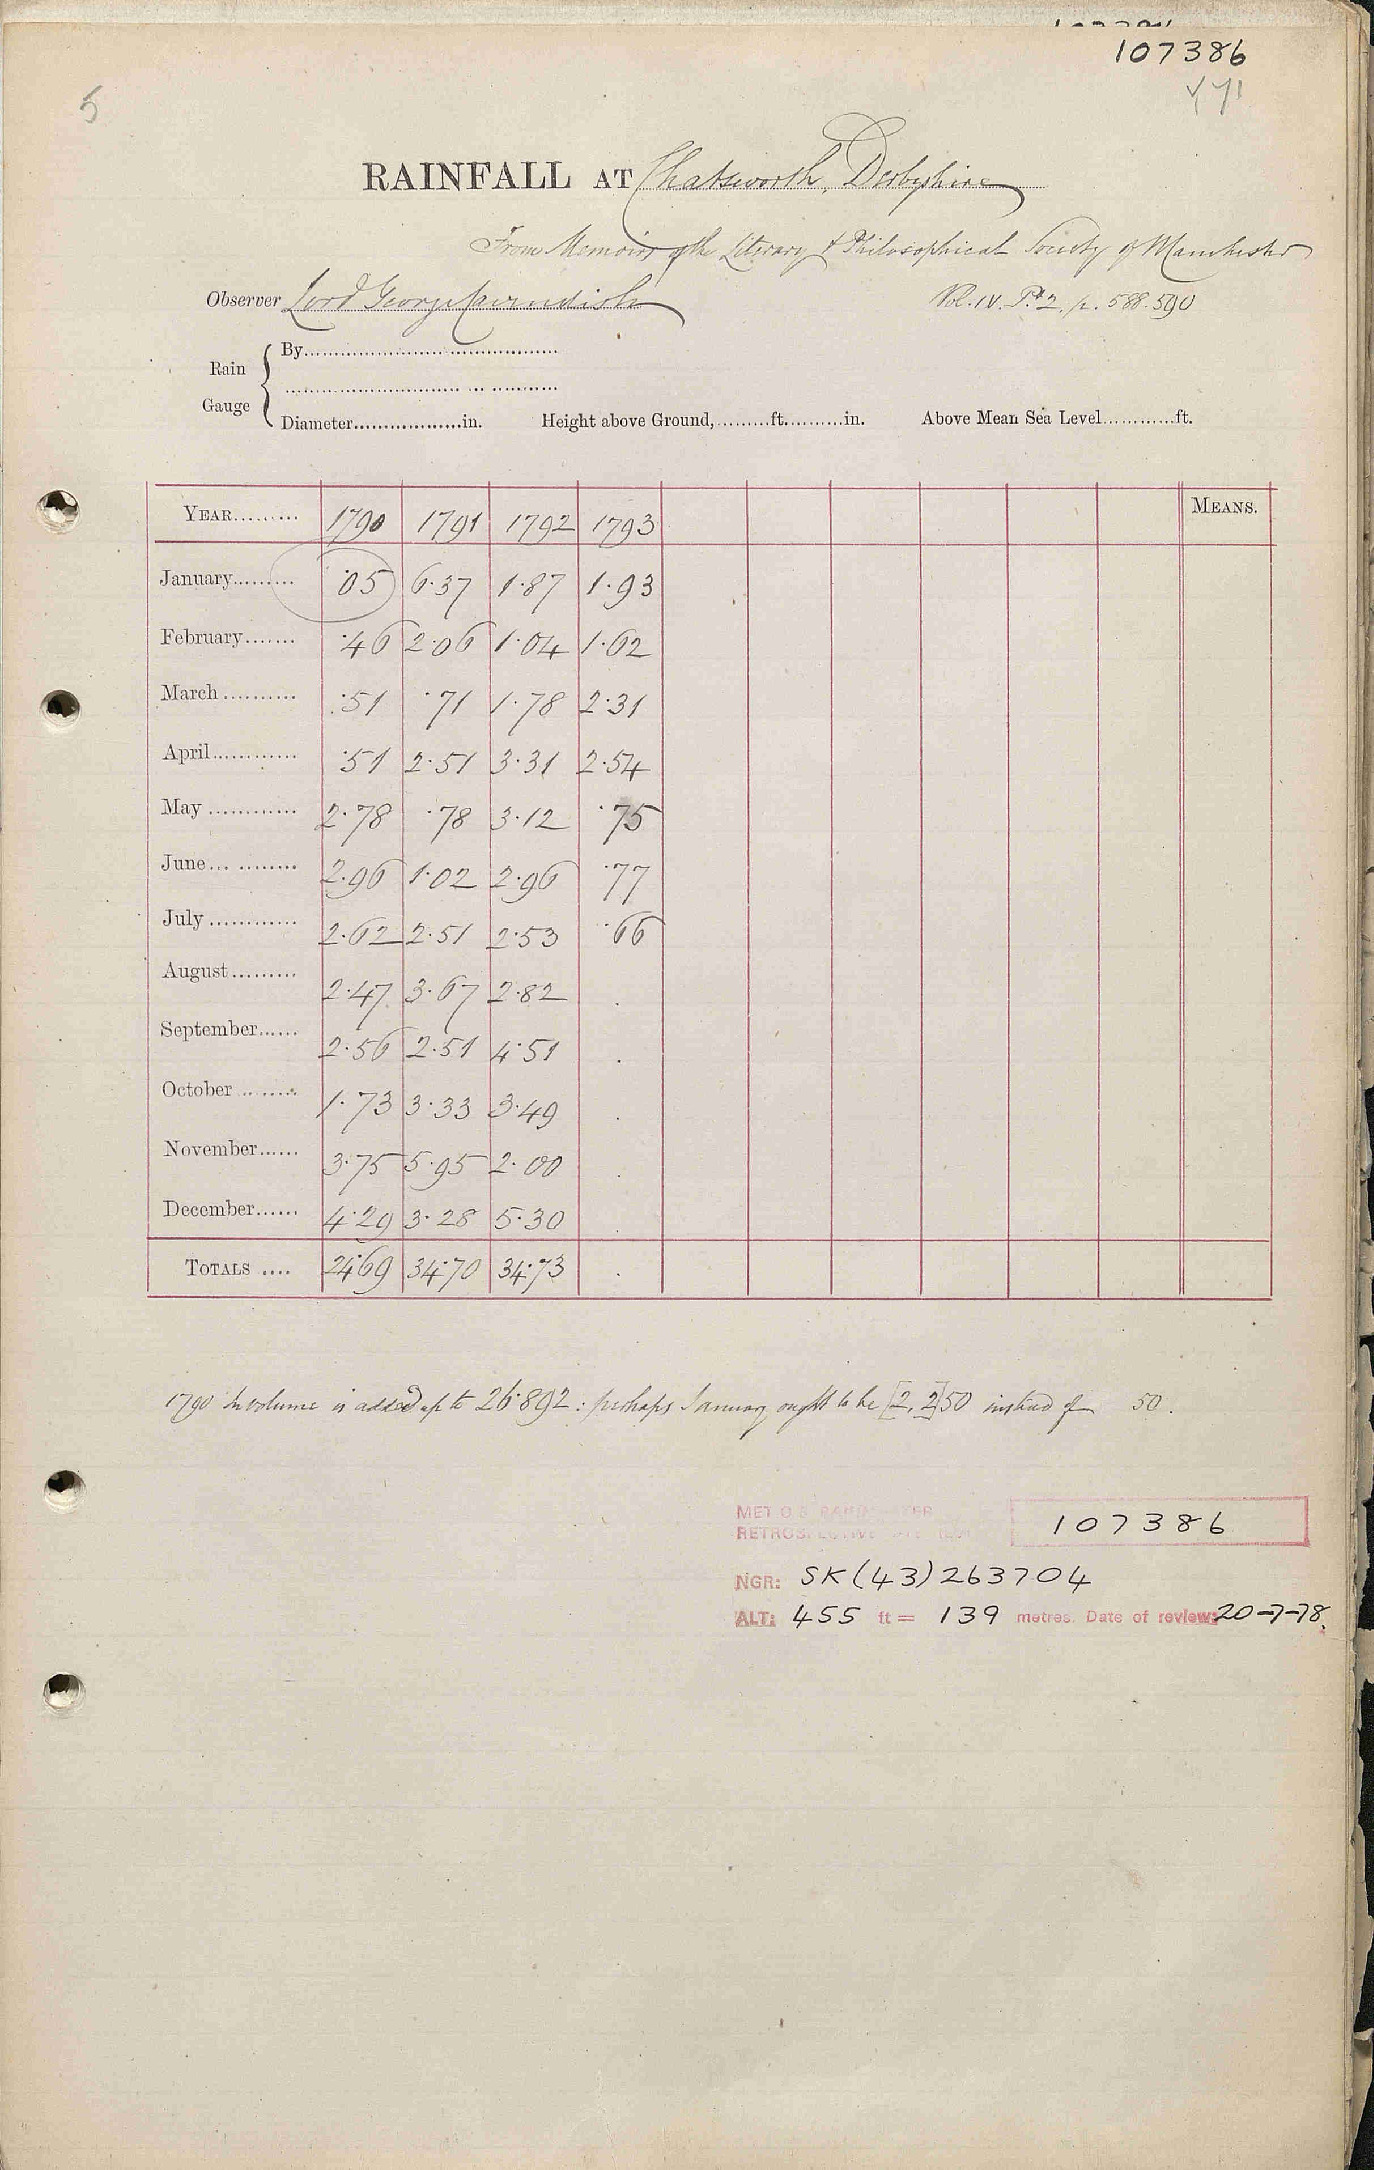 107386
5
RAINFALL AT Chatsworth, Derbyshire
From Memoirs of the Literary & Philosophical Society of Manchester
Observer Lord George Cavendish Vol. IV. Pt 2. p. 588-590
Rain Gauge
By
Diameter in. Height above Ground, ft. in. Above Mean Sea Level ft.
YEAR 1790 1791 1792 1793 MEANS.
January ·05 6·37 1·87 1·93
February ·46 2·06 1·04 1·62
March ·51 ·71 1·78 2·31
April ·51 2·51 3·31 2·54
May 2·78 ·78 3·12 ·75
June 2·96 1·02 2·96 ·77
July 2·62 2·51 2·53 ·66
August 2·47 3·67 2·82 .
September 2·56 2·51 4·51 .
October 1·73 3·33 3·49 .
November 3·75 5·95 2·00 .
December 4·29 3·28 5·30 .
TOTALS 24·69 34·70 34·73 .
1790 in volume is added up to 26·892 : perhaps January ought to be [2. 2]50 instead of 50.
MET O 8 107386
RETROSPECTIVE
NGR: SK (43) 263704
ALT: 455 ft = 139 metres. Date of review: 20-7-78.